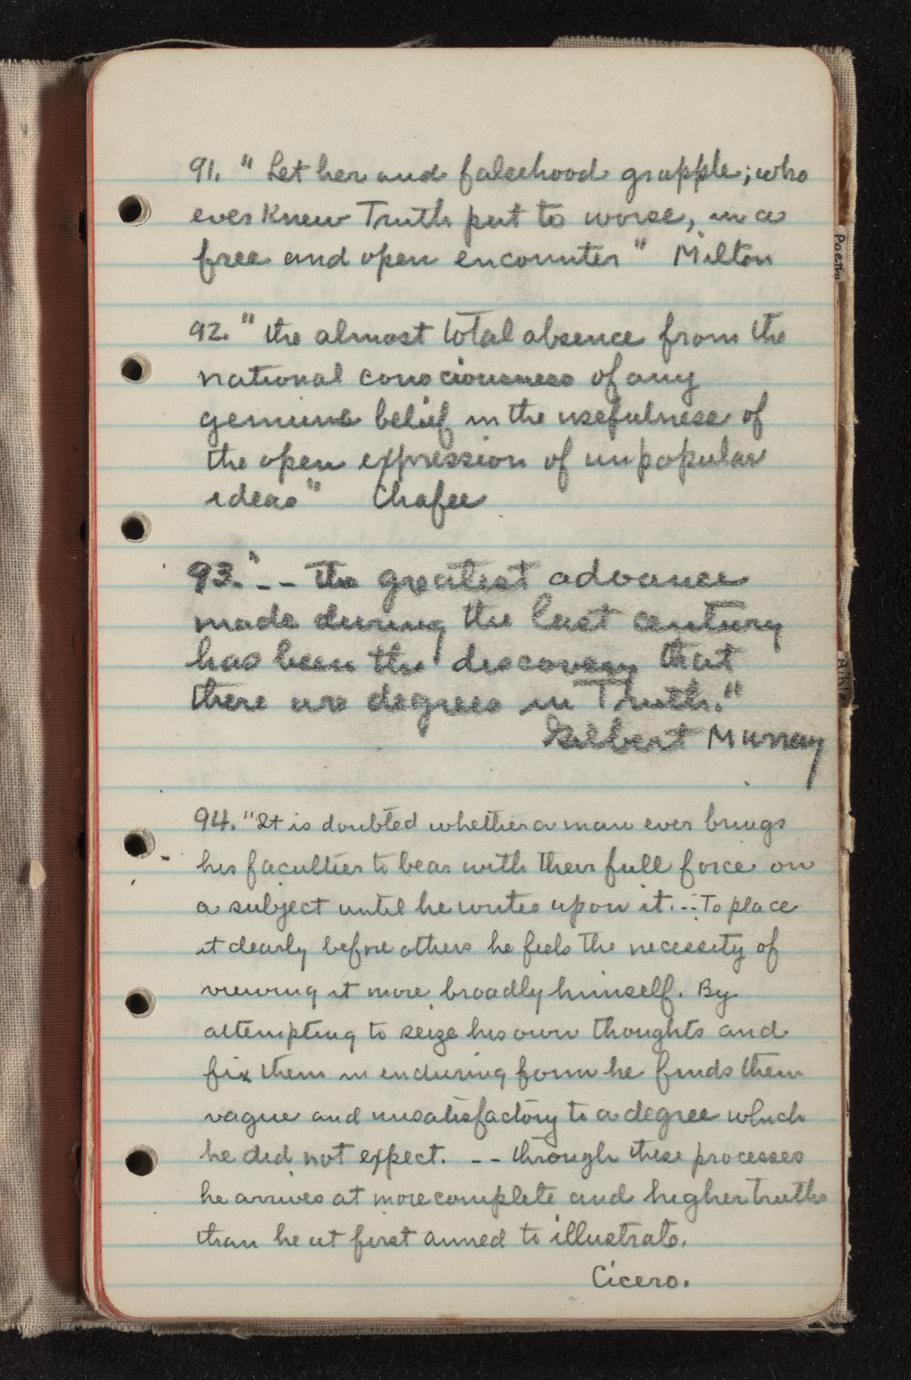 91. " Let her and falsehood grapple; who
ever knew Truth put to worse, in a
free and open encounter" Milton
92. " the almost total absence from the
national consciousness of any
genuine belief in the usefulness of
the open expression of unpopular
ideas" Chafee
93. " -- the greatest advance
made during the last century
has been the discovery that
there are degrees in Truth."
Gilbert Murray
94. "It is doubted whether a man ever brings
his faculties to bear with their full force on
a subject until he writes upon it. -- To place
it clearly before others he feels the necessity of
viewing it more broadly himself. By
attempting to seize his own thoughts and
fix them in enduring form he finds them
vague and unsatisfactory to a degree which
he did not expect. -- through these processes
he arrives at more complete and higher truths
than he at first aimed to illustrate.
Cicero.